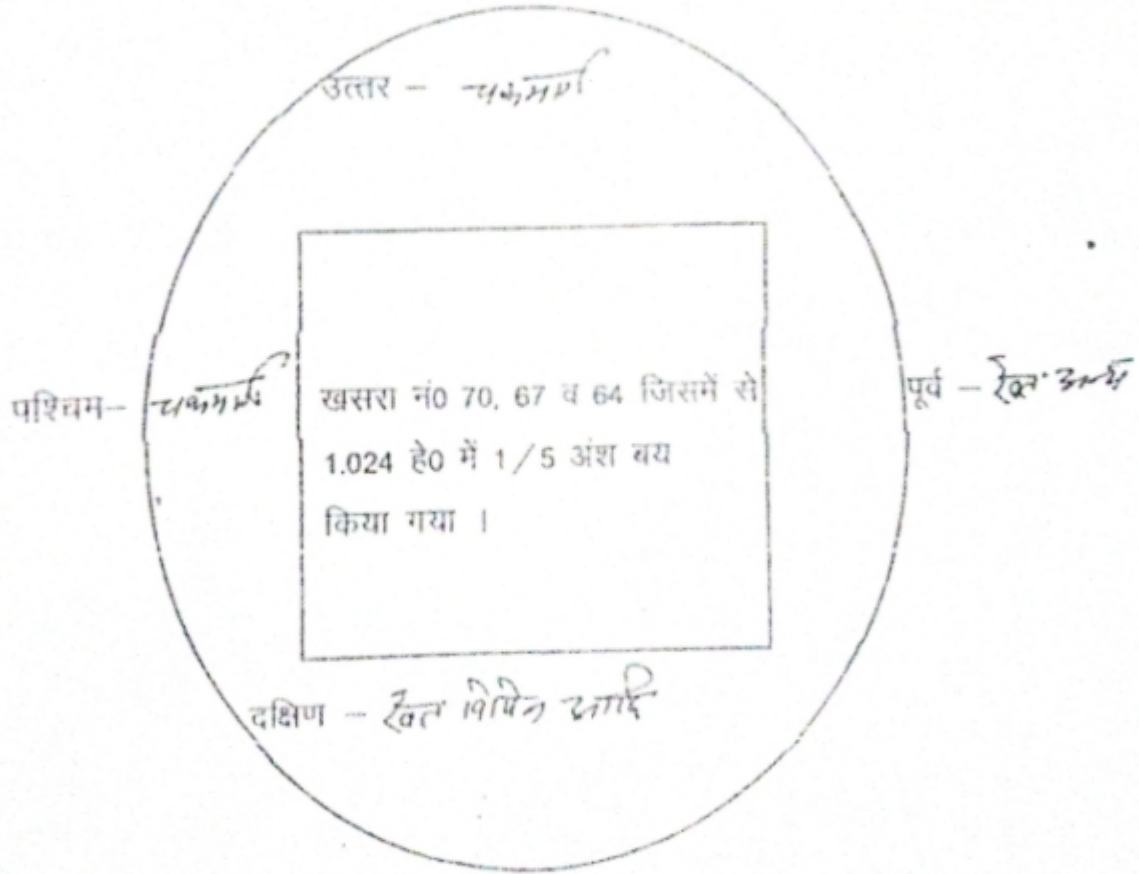 उत्तर – चकमार्ग
पश्चिम– चकमार्ग
खसरा नं0 70, 67 व 64 जिसमें से
1.024 हे0 में 1/5 अंश बय
किया गया ।
पूर्व – खेत अन्य
दक्षिण – खेत विपिन आदि